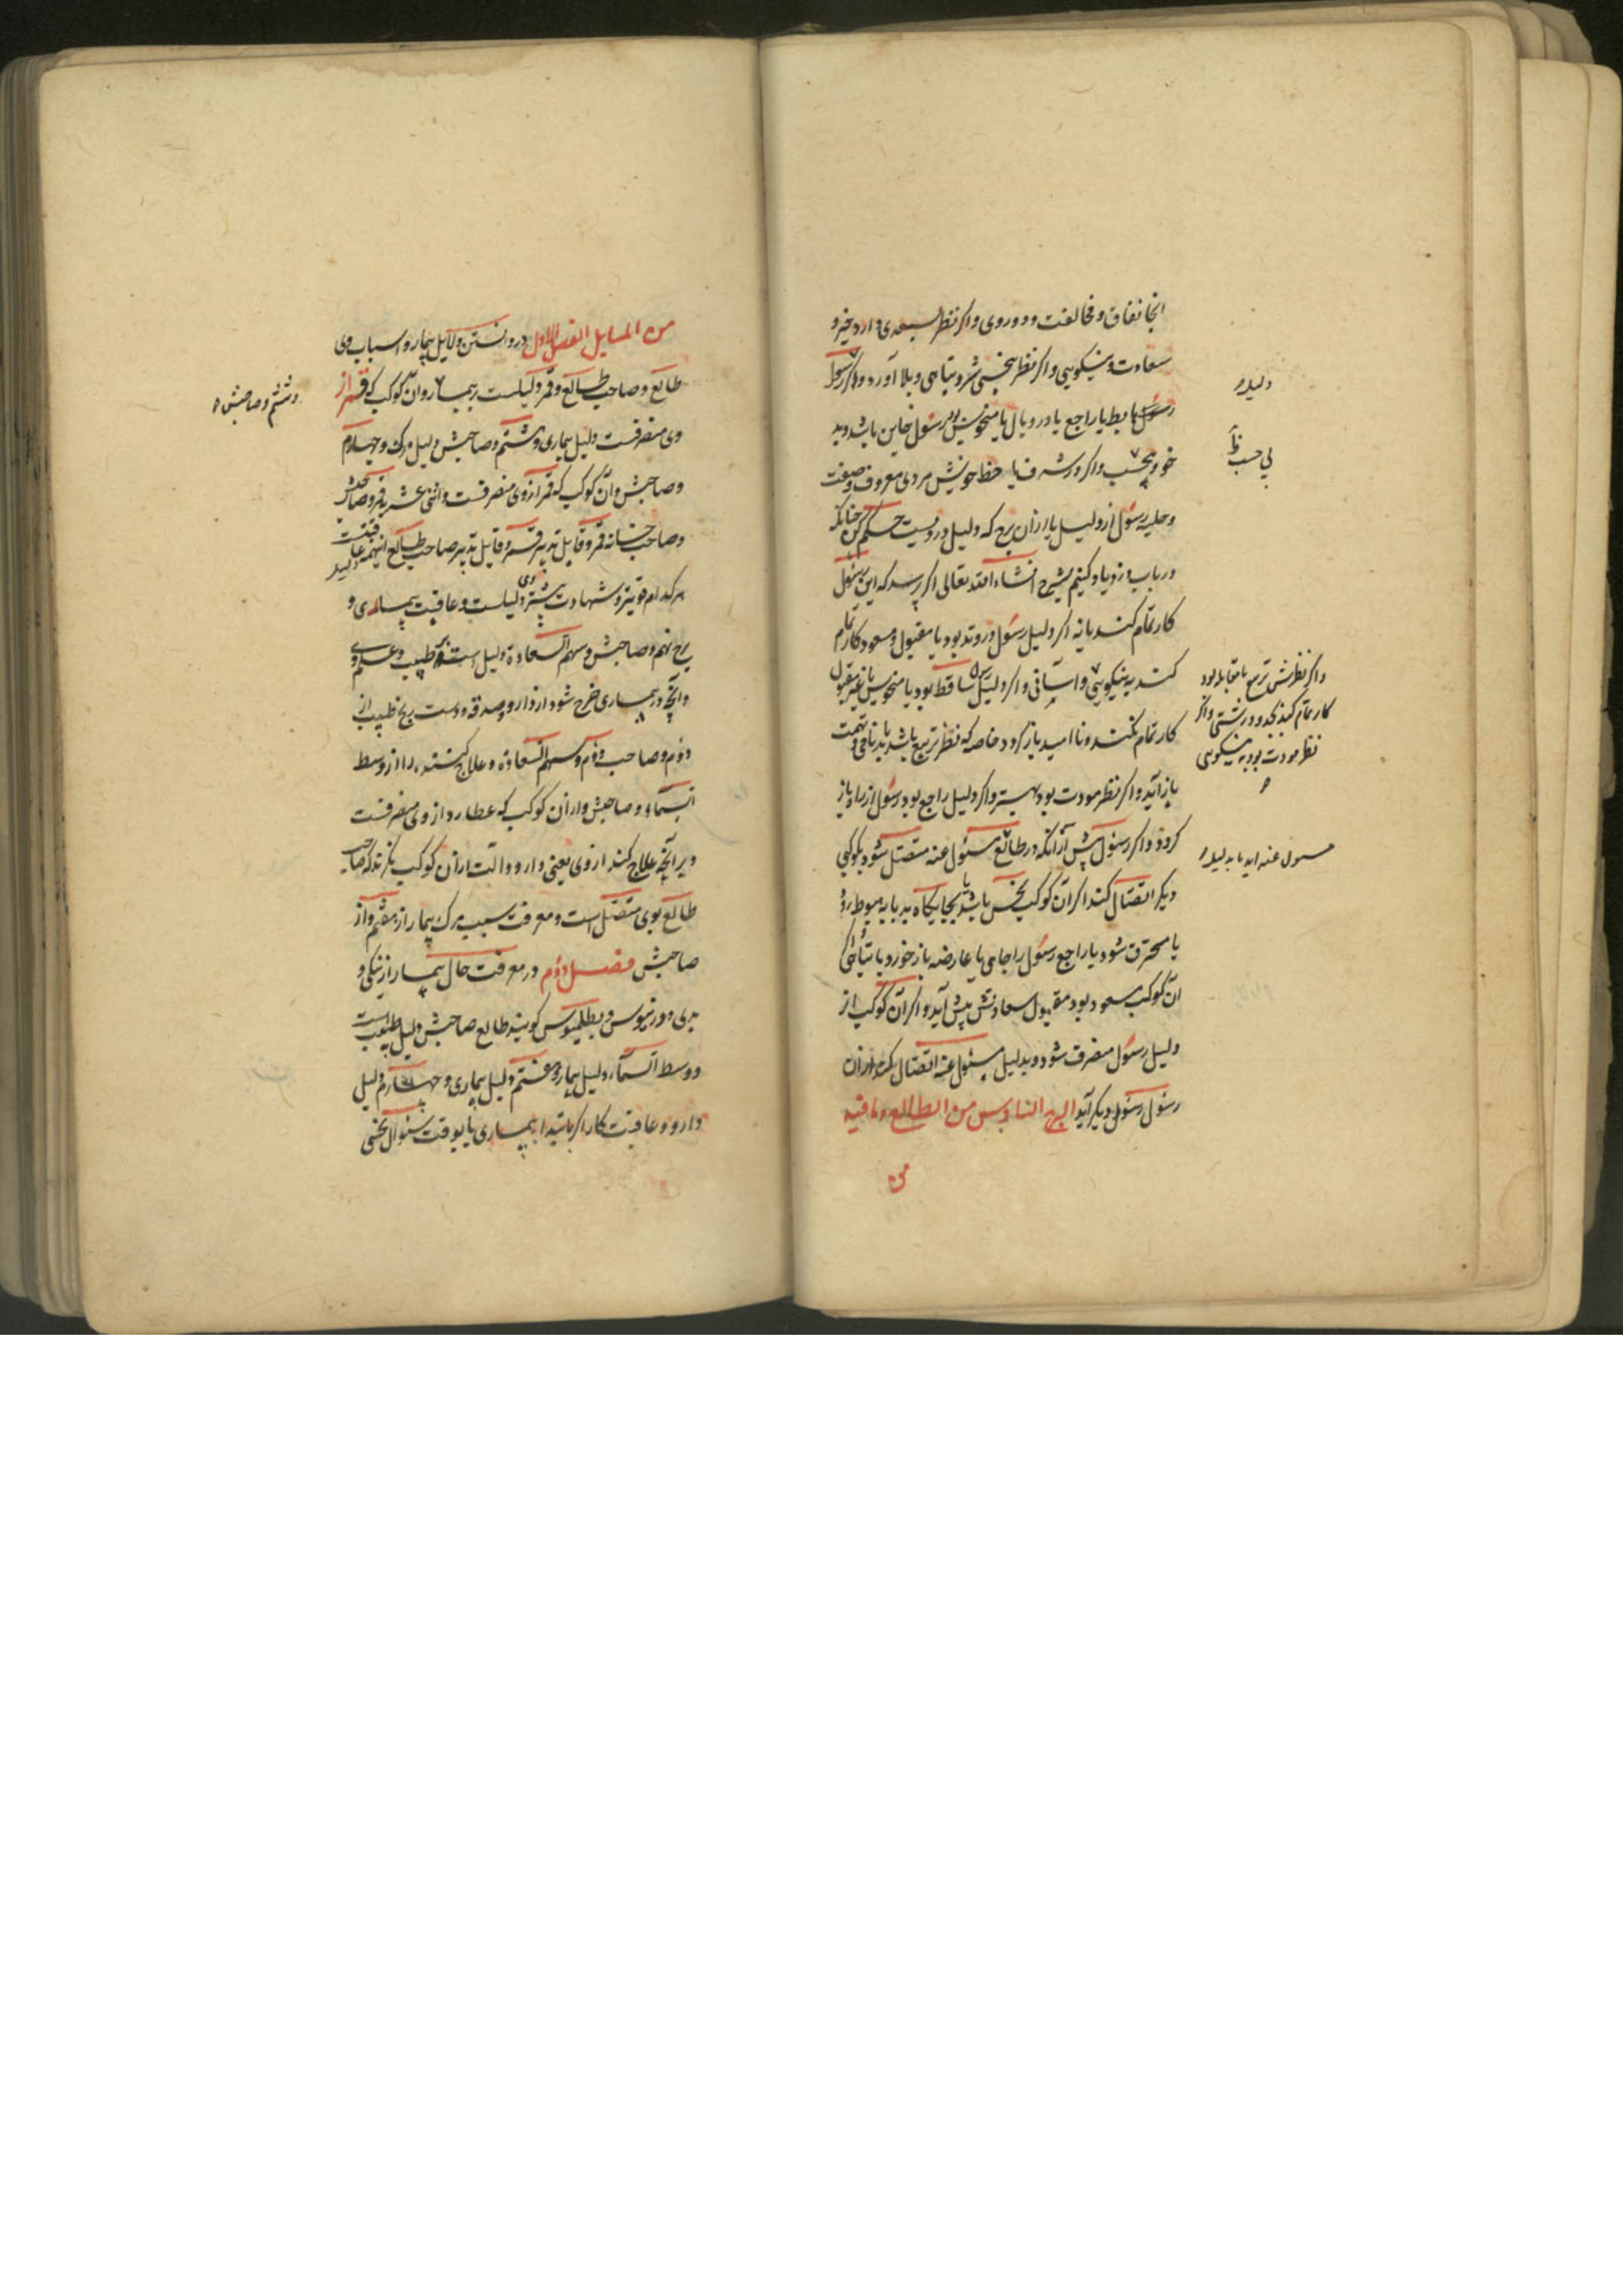 انجا نفاق و مخالفت و دوروی و اکر نظر بسعدی دارد خیر و
سعادت و نیکویی و اکر نظر بنحسی شر و تباهی و بلا آورد و اکر رسول
رسول هابط یا راجع یا در وبال یا منحوس بود رسول خاین باشد و بد
خو و بی‌حسب و اکر در شرف یا حظ خویش مردی معروف و صفت
و حلیه رسول از دلیل یا از ان برج که دلیل درویست حکم کن چنانکه
در باب دزد یاد کنیم بشرح انشاء الله تعالی اکر پرسد که این رسول
کار تمام کند یا نه اکر دلیل رسول در وتد بود یا مقبول و مسعود کار تمام
کند به نیکویی و آسانی و اکر دلیلش ساقط بود یا منحوس یا غیر مقبول
کار تمام نکند و نا امید باز کردد خاصه که نظر تربیع باشد یا بدنامی و تهمت
باز آید و اکر نظر مودت بود بهتر و اکر دلیل راجع بود رسول از راه باز
کردد و اکر رسول پیش از آنکه در طالع مسئول عنه متصل شود بکوکبی
دیکر اتصال کند اکر آن کوکب نحس باشد یا بجایکاه بد یا به هبوط رود
یا محترق شود یا راجع رسول را جایی یا عارضه باز خورد یا تباهی
ان کوکب مسعود بود مقبول سعادتش پیش آید و اکر آن کوکب از
دلیل رسول منصرف شود و بدلیل مسئول عنه اتصال کند از ان
رسول رسول دیکر آید البرج السادس من الطالع و مافیه
من
دلیل
بی حسب
واکر نظرش تربیع یا مقابله بود
کار تمام کند بجد و درشتی و اکر
نظر مودت بود به نیکویی
مسول عنه اید یا بدلیل
من المسایل الفصل الاول در دانستن دلایل بیمار و اسباب وی
طالع و صاحب طالع و قمر دلیلست بر بیمار و ان کوکب که قمر از
وی منصرفست دلیل بیماری و هشتم و صاحبش دلیل مرک و چهارم
و صاحبش و آن کوکب که قمر از وی منصرفست و اثنی عشریه قمر و صاحبش
و صاحب خانه قمر و قابل تدبیر قمر و قابل تدبیر صاحب طالع اینهمه
هر کدام قویتر و شهادت بیشتر دلیلست و عاقبت بیماری و
برج نهم و صاحبش و سهم السعادة دلیل است بر طبیب و علم وی
وآنچه در بیماری خرج شود از دارو و صدقه و دست رنج طبیب از
دوم و صاحب دوم و سهم السعادة و علاج کننده را از وسط
السماء و صاحبش و از ان کوکب که عطارد از وی منصرفست
و برانچه علاج کند از وی یعنی دارو و آلت از آن کوکب نکرند که صاحب
طالع بوی متصل است و معرفت سبب مرک بیمار از هشتم و از
صاحبش فصل دوم در معرفت حال بیمار از نیکی و
بدی دورنیوس و بطلمیوس کویند طالع صاحبش دلیل طبیب است
و وسط السماء دلیل بیمار و هفتم دلیل بیماری و چهارم دلیل
دارو و عاقبت کار اکر باشد ابتدای بیماری یا بوقت سئوال نحسی
و ششم و صاحبش